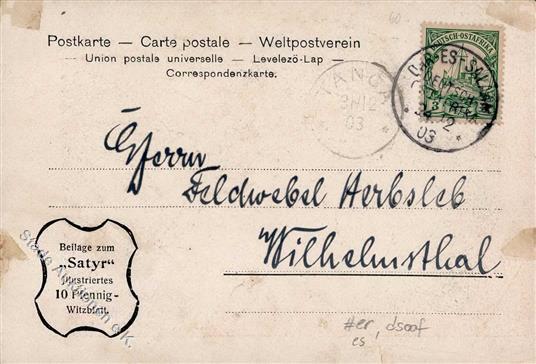 Postkarte — Carte postale — Weltpostverein
— Union postale universelle — Levelező-Lap —
Correspondenzkarte.
DEUTSCH-OSTAFRIKA
3
DAR-ESSALAM
12
03
TANGA
31/12
03
Herrn
Feldwebel Herbsleb
Wilhelmsthal
Beilage zum
„Satyr“
illustriertes
10 Pfennig-
Witzblatt.